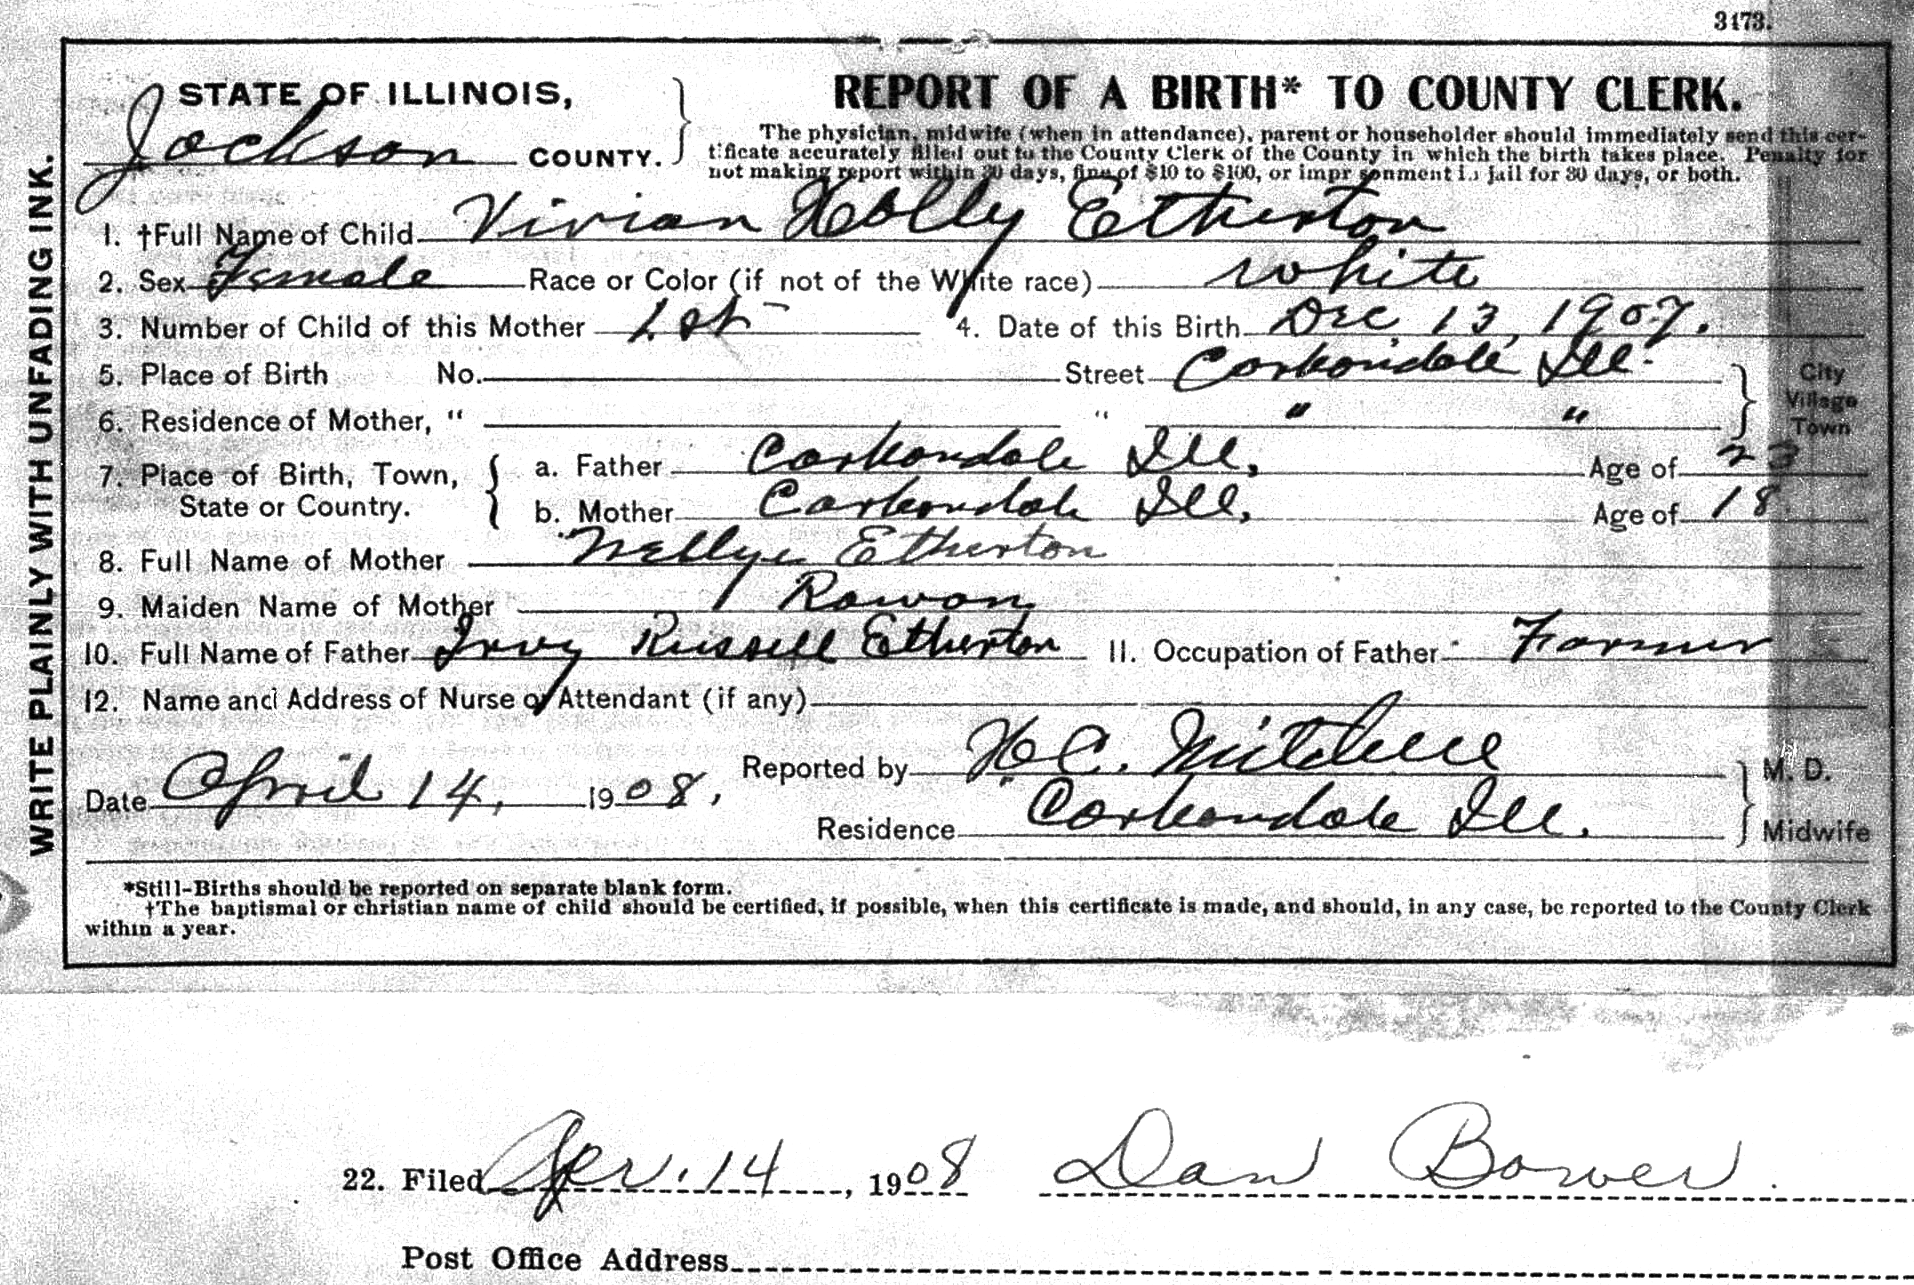 3173.
STATE OF ILLINOIS,
Jackson COUNTY.
REPORT OF A BIRTH* TO COUNTY CLERK.
The physician, midwife (when in attendance), parent or householder should immediately send this cer-
tificate accurately filled out to the County Clerk of the County in which the birth takes place. Penalty for
not making report within 30 days, fine of $10 to $100, or imprisonment in jail for 30 days, or both.
WRITE PLAINLY WITH UNFADING INK.
1. †Full Name of Child Vivian Holly Etherton
2. Sex Female Race or Color (if not of the White race) White
3. Number of Child of this Mother 1st 4. Date of this Birth Dec 13, 1907.
5. Place of Birth No. Street Carbondale Ill. City
Village
6. Residence of Mother, " " " " Town
7. Place of Birth, Town, a. Father Carbondale Ill, Age of 23
State or Country. b. Mother Carbondale Ill, Age of 18
8. Full Name of Mother Nellye Etherton
9. Maiden Name of Mother Rowan
10. Full Name of Father Irvy Russell Etherton 11. Occupation of Father Farmer
12. Name and Address of Nurse or Attendant (if any)
Date April 14, 1908, Reported by H C. Mitchell M. D.
Residence Carbondale Ill. Midwife
*Still-Births should be reported on separate blank form.
†The baptismal or christian name of child should be certified, if possible, when this certificate is made, and should, in any case, be reported to the County Clerk
within a year.
22. Filed Apr. 14, 1908 Dan Bower.
Post Office Address